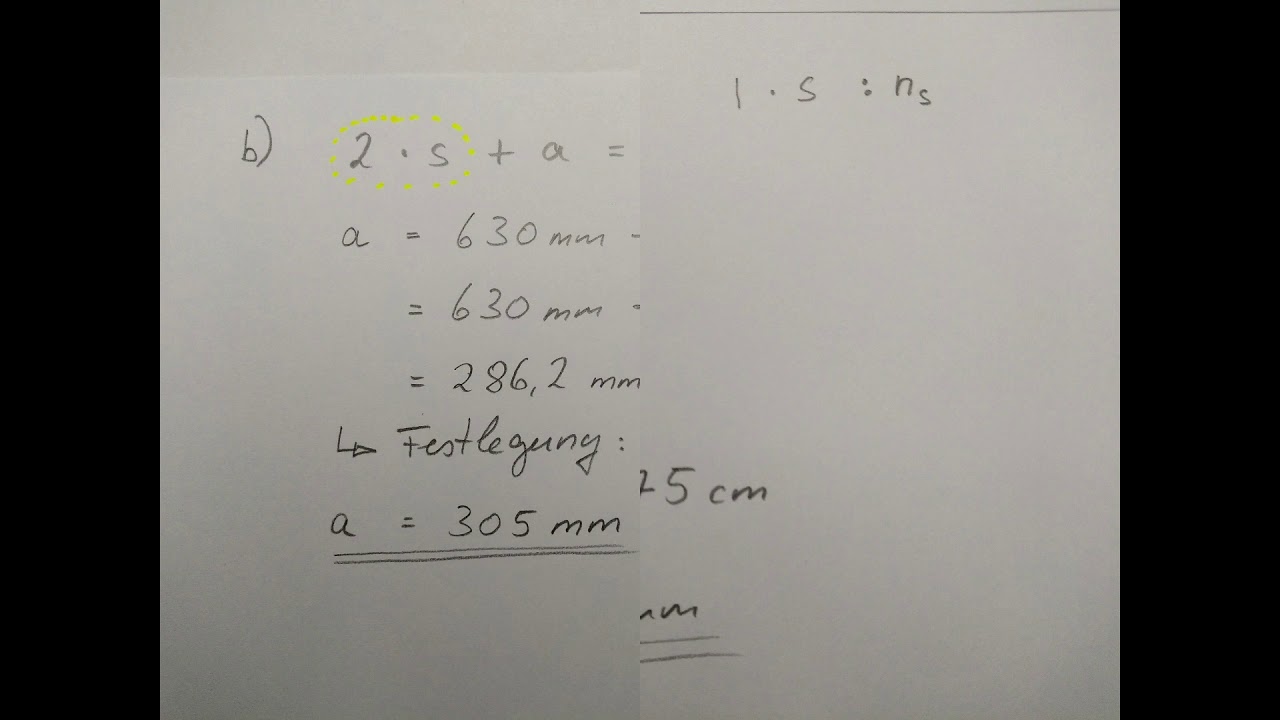 b) 2 · s + a =
a = 630 mm -
= 630 mm -
= 286,2 mm
↳ Festlegung:
a = 305 mm
1 · s : nₛ
25 cm
mm